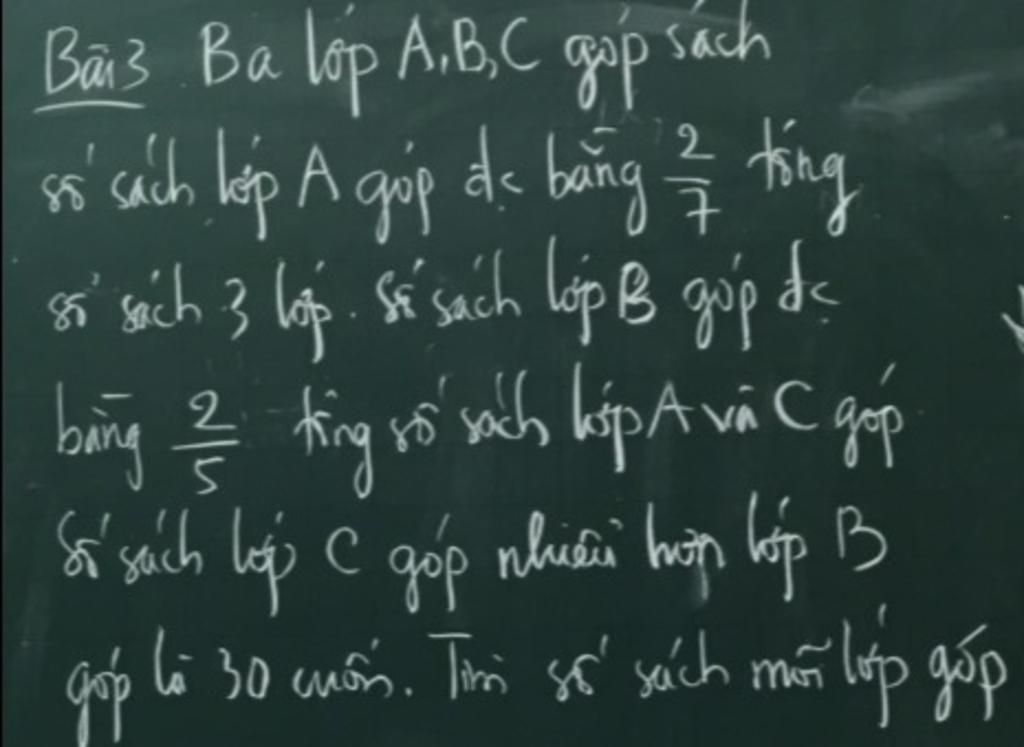 Bài 3 Ba lớp A,B,C góp sách
số sách lớp A góp đc bằng 2/7 tổng
số sách 3 lớp. Số sách lớp B góp đc
bằng 2/5 tổng số sách lớp A và C góp
Số sách lớp C góp nhiều hơn lớp B
góp là 30 cuốn. Tìm số sách mỗi lớp góp